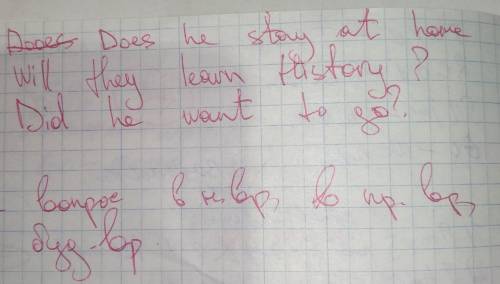 Dooes Does he stay at home
Will they learn History ?
Did he want to go?
вопрос в н. вр, в пр. вр,
буд. вр.